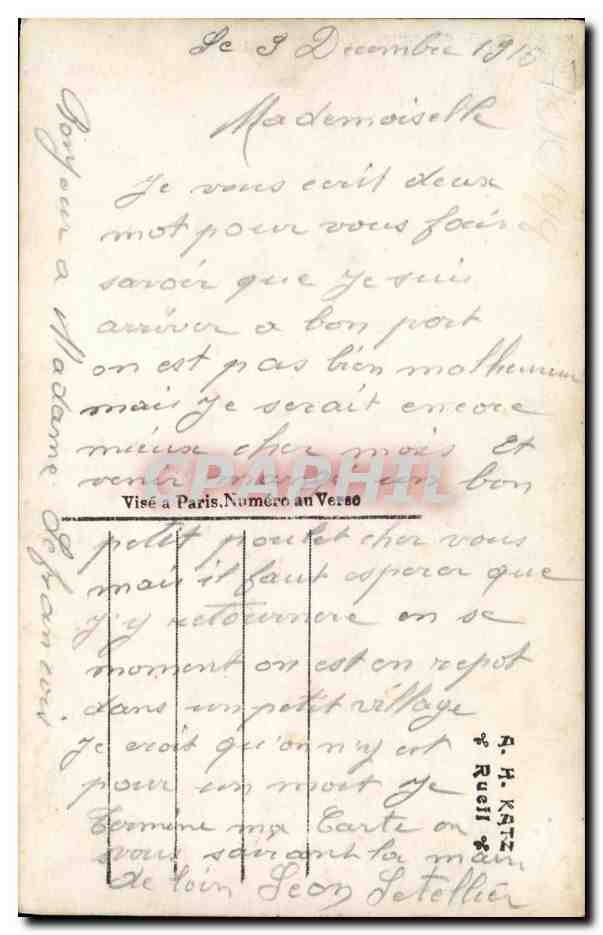 Le 9 Decembre 1915
Mademoiselle
Je vous ecrit deux
mot pour vous faire
savoir que Je suis
arriver a bon port
on est pas bien malheureu
mais Je serait encore
mieux cher mois Et
venir mangé un bon
Visé a Paris, Numéro au Verso
petit poulet cher vous
mais il faut esperer que
J'y retournere en se
moment on est en repot
dans un petit village
Je croit qu'on n'y est
pour un mort Je
termine ma Carte en
vous sairant la main
de loin Leon Letellier
Bonjour a Madame Lefrancois
A. H. KATZ
Rueil
CPAPHIL